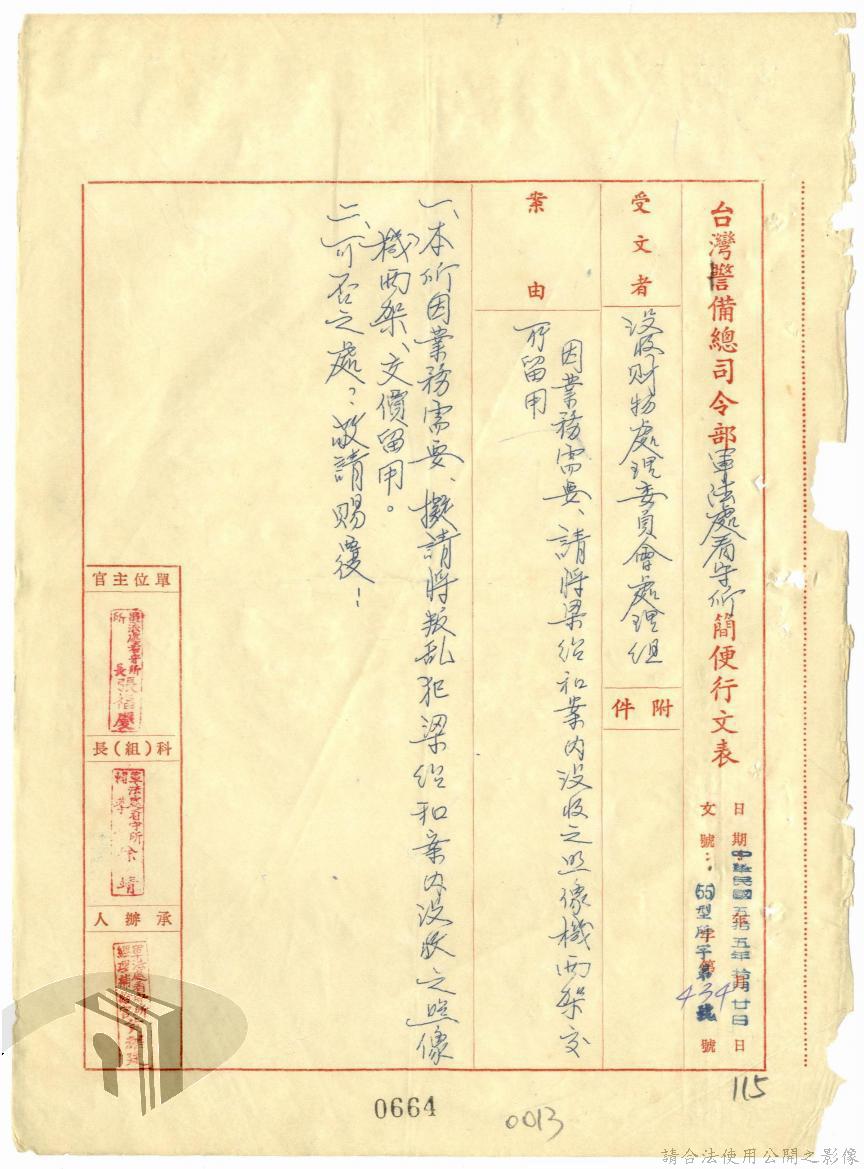 台灣警備總司令部軍法處看守所簡便行文表
日期中華民國五拾五年拾月廿日
文號：(55)型所字第434號
受文者
沒收財物處理委員會處理組
附件
案由
因業務需要、請將梁紹和案內沒收之照像機兩架交
所留用
一、本所因業務需要、擬請將叛乱犯梁紹和案內沒收之照像
機兩架、交價留用。
二、可否之處？敬請賜覆！
單位主官
軍法處看守所
所長張
科(組)長
軍法處看守所
承辦人
軍法處看守所
0664
0013
115
請合法使用公開之影像